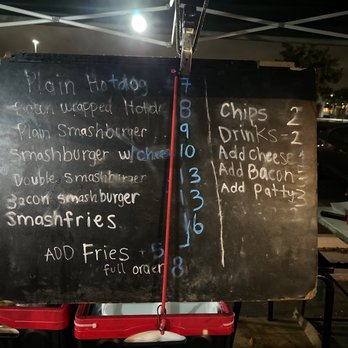 Plain Hotdog 7
Bacon wrapped Hotdog 8
Plain Smashburger 9
Smashburger w/cheese 10
Double Smashburger 13
Bacon smashburger 13
Smashfries
ADD Fries +5
full order 8
Chips 2
Drinks-2
Add Cheese
Add Bacon
Add Patty 3